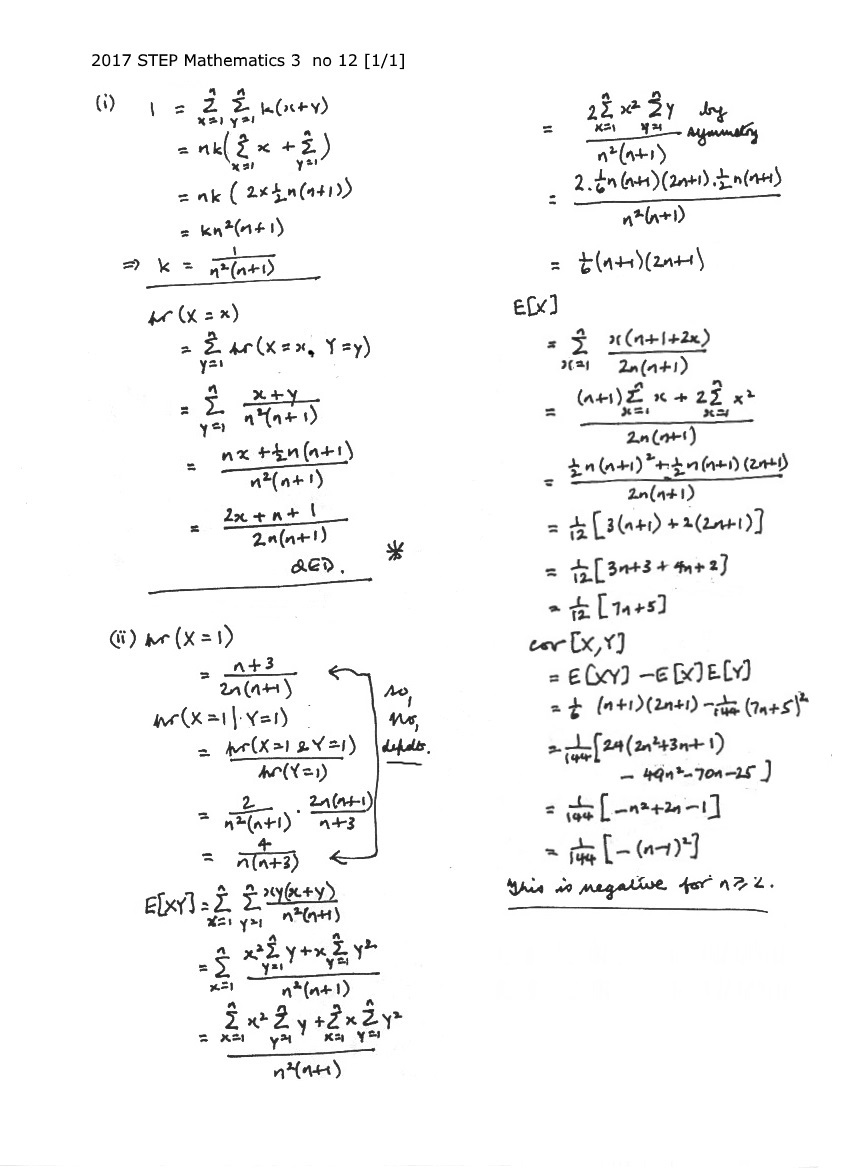 2017 STEP Mathematics 3 no 12 [1/1]
(i) 1 = n∑x=1 n∑y=1 k(x+y)
= nk(n∑x=1 x + n∑y=1)
= nk ( 2×½n(n+1))
= kn²(n+1)
⇒ k = 1/n²(n+1)
pr(X = x)
= n∑y=1 pr(X=x, Y=y)
= n∑y=1 x+y/n²(n+1)
= nx + ½n(n+1)/n²(n+1)
= 2x + n + 1/2n(n+1)
QED. *
(ii) pr(X=1)
= n+3/2n(n+1)
pr(X=1|Y=1)
= pr(X=1 & Y=1)/pr(Y=1)
= 2/n²(n+1) · 2n(n+1)/n+3
= 4/n(n+3)
so,
no,
depdt.
E[XY] = n∑x=1 n∑y=1 xy(x+y)/n²(n+1)
= n∑x=1 x² n∑y=1 y + x n∑y=1 y²/n²(n+1)
= n∑x=1 x² n∑y=1 y + n∑x=1 x n∑y=1 y²/n²(n+1)
= 2 n∑x=1 x² n∑y=1 y/n²(n+1) by symmetry
= 2.⅙n(n+1)(2n+1).½n(n+1)/n²(n+1)
= ⅙(n+1)(2n+1)
E[X]
= n∑x=1 x(n+1+2x)/2n(n+1)
= (n+1) n∑x=1 x + 2 n∑x=1 x²/2n(n+1)
= ½n(n+1)² + ⅓n(n+1)(2n+1)/2n(n+1)
= 1/12 [3(n+1) + 2(2n+1)]
= 1/12 [3n+3 + 4n+2]
= 1/12 [7n+5]
cov[X,Y]
= E[XY] - E[X]E[Y]
= ⅙ (n+1)(2n+1) - 1/144 (7n+5)²
= 1/144 [24(2n²+3n+1)
- 49n²-70n-25]
= 1/144 [-n²+2n-1]
= 1/144 [-(n-1)²]
This is negative for n ≥ 2.